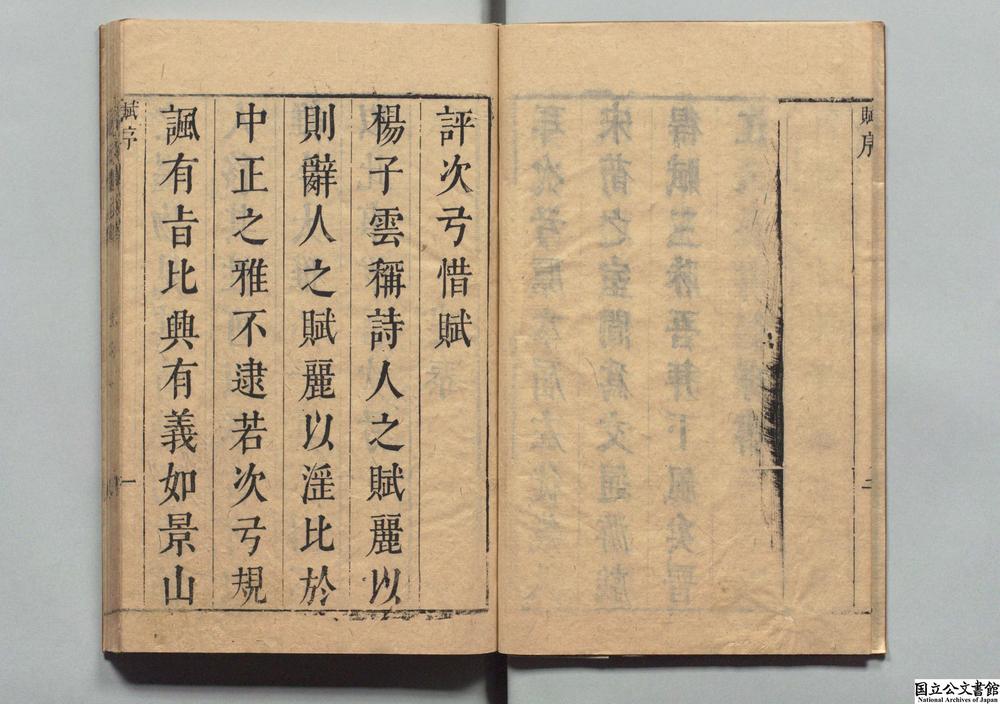 賦序
二
評次弓惜賦
楊子雲稱詩人之賦麗以
則辭人之賦麗以淫比於
中正之雅不逮若次弓規
諷有㫖比興有義如景山
賦序
一
国立公文書館
National Archives of Japan